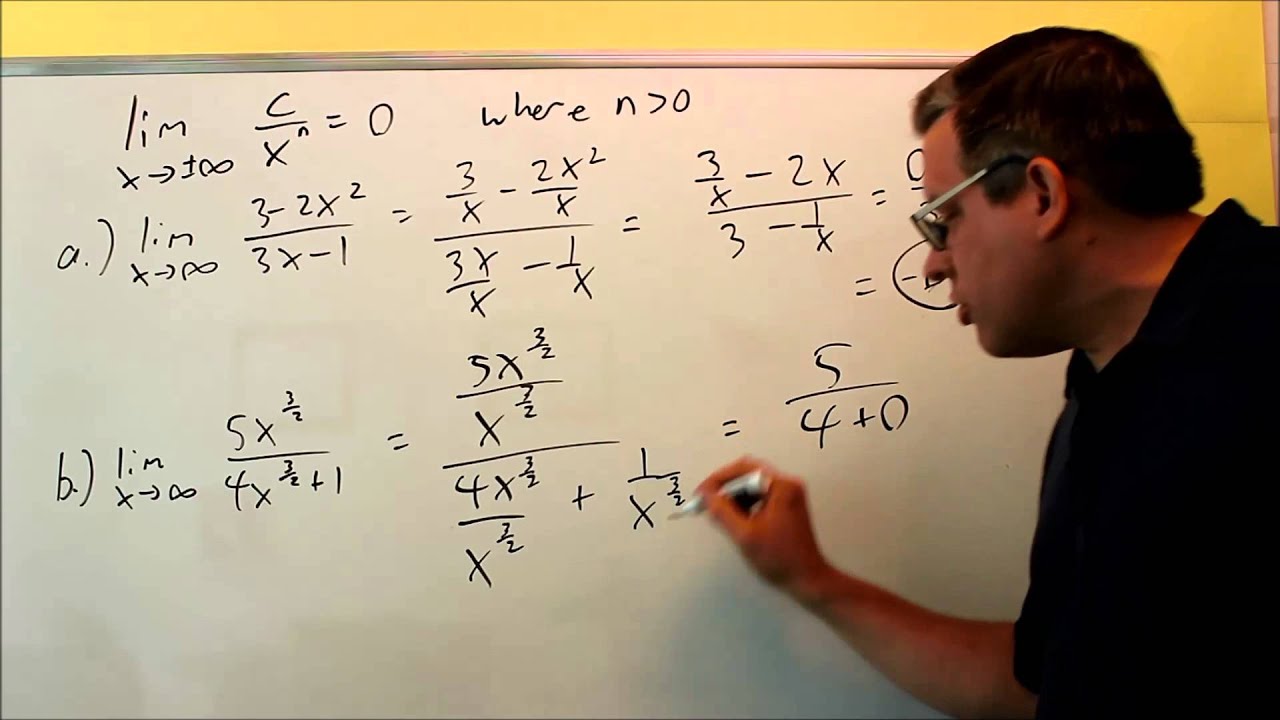 lim x→±∞ c/x^n = 0 where n>0
a.) lim x→∞ (3-2x^2)/(3x-1) = (3/x - 2x^2/x)/(3x/x - 1/x) = (3/x - 2x)/(3 - 1/x) =
=
b.) lim x→∞ 5x^(3/2)/(4x^(3/2)+1) = (5x^(3/2)/x^(3/2))/(4x^(3/2)/x^(3/2) + 1/x^(3/2)) = 5/(4+0)